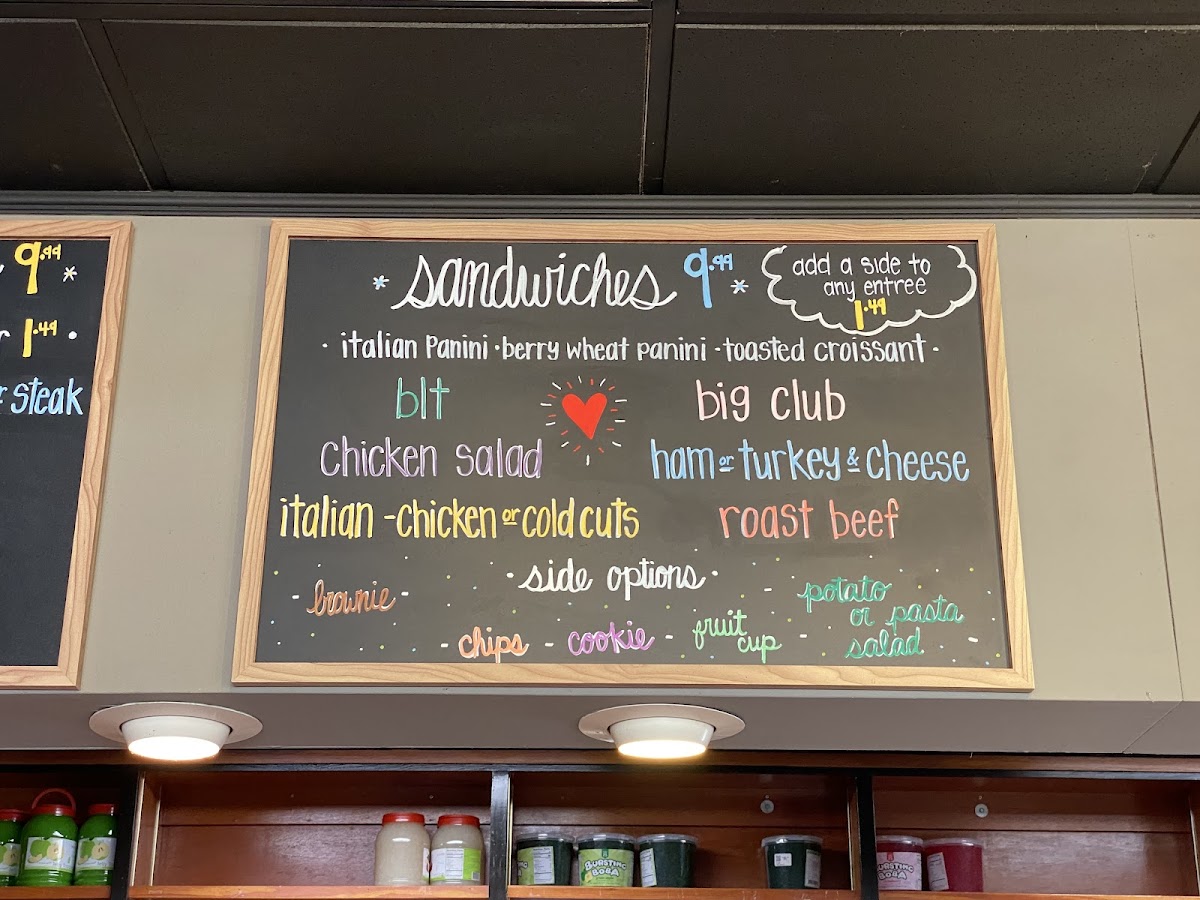 9.99 *
1.49 •
steak
* sandwiches 9.99 *
add a side to
any entree
1.49
· italian Panini · berry wheat panini · toasted croissant ·
blt
big club
chicken salad
ham or turkey & cheese
italian - chicken or cold cuts
roast beef
· side options ·
- brownie -
- chips - cookie - fruit cup -
- potato
or pasta
salad -
BURSTING
BOBA
BURSTING
BOBA